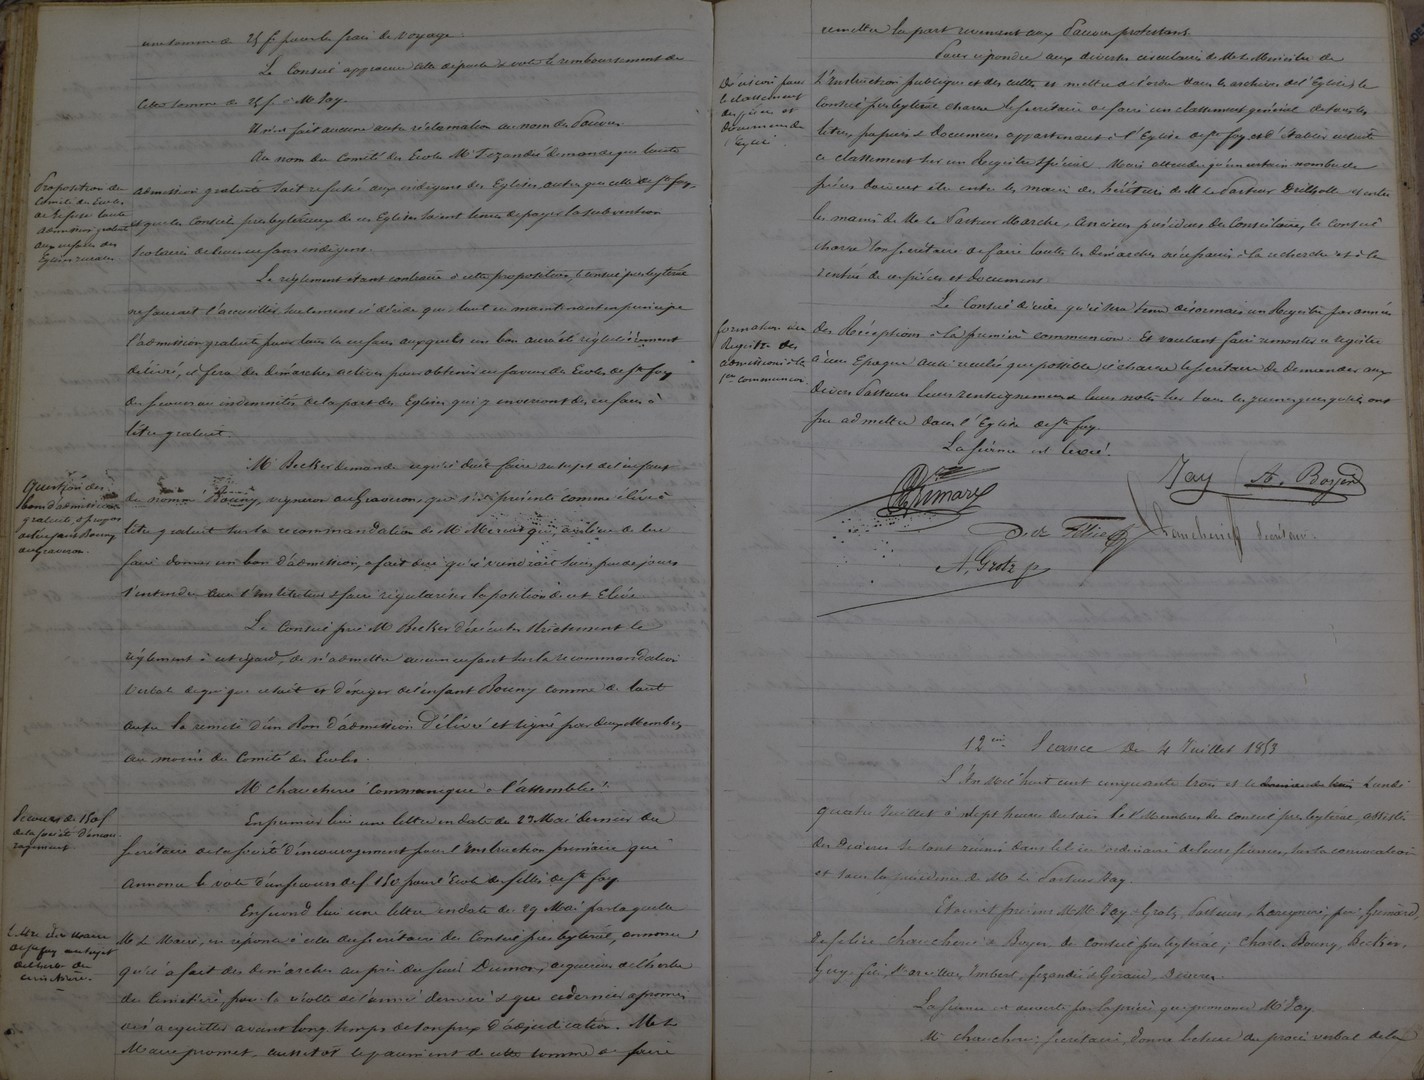 une somme de 25 f. pour les frais de voyage.
Le Conseil approuve cette dépense & vote le remboursement de
cette somme de 25 f. à Mr Jay.
Il n'est fait aucune autre réclamation au nom des Pauvres.
Au nom du Comité des Ecoles Mr demande que toute
Proposition du
Comité des Ecoles
de refuser toute
admission gratuite
aux enfans des
Eglises rurales
admission gratuite soit refusée aux indigens des Eglises autres que celle de Ste foy,
et que les Conseils presbytéraux de ces Eglises soient tenus de payer la subvention
scolaire de leurs enfans indigens.
Le règlement étant contraire à cette proposition, le Conseil presbytéral
ne saurait l'accueillir. Seulement il décide que tout en maintenant en principe
l'admission gratuite pour tous les enfans auxquels un bon aura été régulièrement
délivré, il fera des démarches actives pour obtenir en faveur des Ecoles de Ste foy
des secours ou indemnités de la part des Eglises qui y enverront des enfans à
titre gratuit.
Mr Becker demande ce qu'il doit faire au sujet de l'enfant
Question des
bons d'admission
gratuite, à propos
de l'enfant Bouny
du Graveron.
du nommé Bouny, vigneron au Graveron, qui s'est présenté comme élève à
titre gratuit sur la recommandation de Mr qui, au lieu de lui
faire donner un bon d'admission, a fait dire qu'il viendrait sous peu de jours
s'entendre avec l'Instituteur & faire régulariser la position de cet Elève.
Le Conseil prie Mr Becker d'exécuter strictement le
règlement à cet égard, de n'admettre aucun enfant sur la recommandation
verbale de qui que ce soit et d'exiger de l'enfant Bouny comme de tout
autre la remise d'un Bon d'admission délivré et signé par deux Membres
au moins du Comité des Ecoles.
Mr Chaucherie communique à l'assemblée:
Secours de 150 f
de la société d'encou-
ragement
En premier lieu une lettre en date du 27 Mai dernier du
Secrétaire de la Société d'encouragement pour l'Instruction primaire qui
annonce le vote d'un secours de f. 150 pour l'Ecole de filles de Ste foy.
En second lieu une lettre en date du 29 Mai par laquelle
Lettre du Maire
de Ste foy au sujet
de l'herbe du
cimetière.
Mr le Maire, en réponse à celle du Secrétaire du Conseil presbytéral, annonce
qu'il a fait des démarches auprès du sieur Dumon, acquéreur de l'herbe
du Cimetière, pour la récolte de l'année dernière & que ce dernier a promis
de s'acquitter avant long temps de son prix d'adjudication. Mr le
Maire promet, aussitôt le paiement de cette somme de faire
remettre la part revenant aux Pauvres protestans.
Pour répondre aux diverses circulaires de Mr le Ministre de
Décision pour
le classement
des pièces et
documens de
l'Eglise.
l'Instruction publique et des cultes et mettre de l'ordre dans les archives de l'Eglise, le
Conseil presbytéral charge le Secrétaire de faire un classement général de tous les
titres, papiers & documens appartenant à l'Eglise de Ste foy, et d'établir ensuite
ce classement sur un Registre spécial. Mais attendu qu'un certain nombre de
pièces doivent être entre les mains des héritiers de Mr le Pasteur et entre
les mains de Mr le Pasteur Marche, anciens présidens du Consistoire, le conseil
charge son Secrétaire de faire toutes les démarches nécessaires à la recherche et à la
rentrée de ces pièces et documens.
Le Conseil décide qu'il sera tenu désormais un Registre par année
formation d'un
Registre des
admissions à la
1ère communion.
des Réceptions à la première communion. Et voulant faire remonter ce registre
à une Epoque aussi reculée que possible, il charge le Secrétaire de demander aux
divers Pasteurs leurs renseignemens & leurs notes sur tous les jeunes gens qu'ils ont
fait admettre dans l'Eglise de Ste foy.
La séance est levée.
Jay A. Boyer
A. Grotz p
Chaucherie Secrétaire.
12me Séance du 4 Juillet 1853
L'An Mil huit cent cinquante trois et le Lundi
quatre Juillet à sept heures du soir les Membres du conseil presbytéral, assistés
des Diacres se sont réunis dans le lieu ordinaire de leurs séances, sur la convocation
et sous la présidence de Mr le Pasteur Jay.
Etaient présens MM. Jay, Grotz, Pasteurs,
Chaucherie & Boyer du Conseil presbytéral; Charles Bouny, Becker,
Guy fils, Imbert, & Géraud, Diacres.
La séance est ouverte par la prière que prononce Mr Jay.
Mr Chaucherie, Secrétaire, donne lecture du procès verbal de la